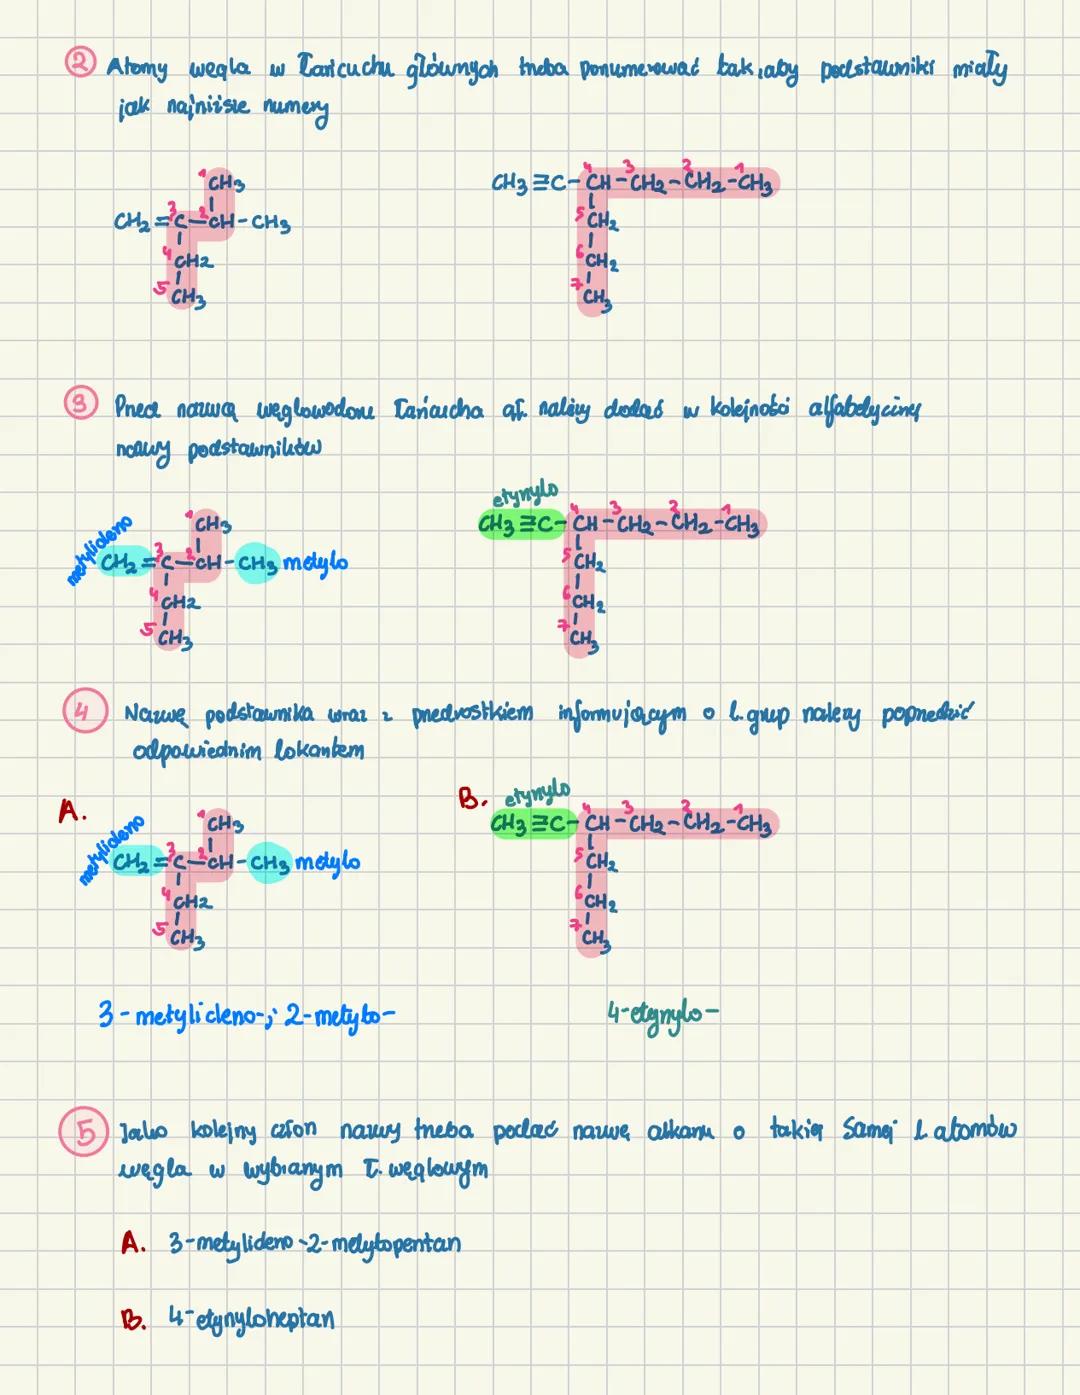 2 Atomy węgla w łańcuchu głównych trzeba ponumerować tak, aby podstawniki miały
jak najniższe numery
1 CH3
CH2 = 3 C - 2 CH - CH3
4 CH2
5 CH3
CH3 ≡ C - 4 CH - 3 CH2 - 2 CH2 - 1 CH3
5 CH2
6 CH2
7 CH3
3 Przed nazwą węglowodoru łańcucha gł. należy dodać w kolejności alfabetycznej
nazwy podstawników
1 CH3
metylideno CH2 = 3 C - 2 CH - CH3 metylo
4 CH2
5 CH3
etynylo
CH3 ≡ C - 4 CH - 3 CH2 - 2 CH2 - 1 CH3
5 CH2
6 CH2
7 CH3
4 Nazwę podstawnika wraz z przedrostkiem informującym o l. grup należy poprzedzić
odpowiednim lokantem
A.
1 CH3
metylideno CH2 = 3 C - 2 CH - CH3 metylo
4 CH2
5 CH3
3-metylideno-; 2-metylo-
B. etynylo
CH3 ≡ C - 4 CH - 3 CH2 - 2 CH2 - 1 CH3
5 CH2
6 CH2
7 CH3
4-etynylo-
5 Jako kolejny człon nazwy trzeba podać nazwę alkanu o takiej samej l. atomów
węgla w wybranym ł. węglowym
A. 3-metylideno-2-metylopentan
B. 4-etynyloheptan